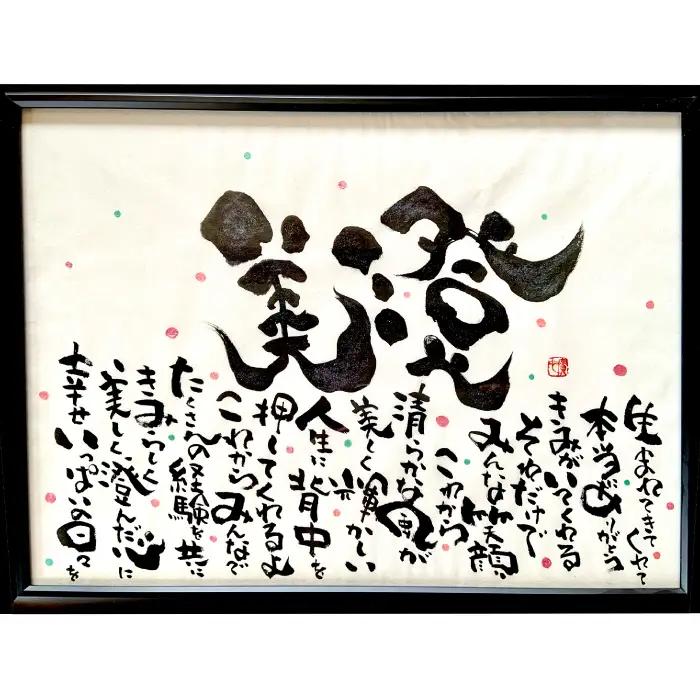 澄美
生まれてきてくれて
本当ありがとう
きみがいてくれる
それだけで
みんな笑顔
これから
清らかな風が
美しく輝かしい
人生に背中を
押してくれるよ
これからみんなで
たくさんの経験を共に
きみらしく
美しく澄んだ心に
幸せいっぱいの日々を